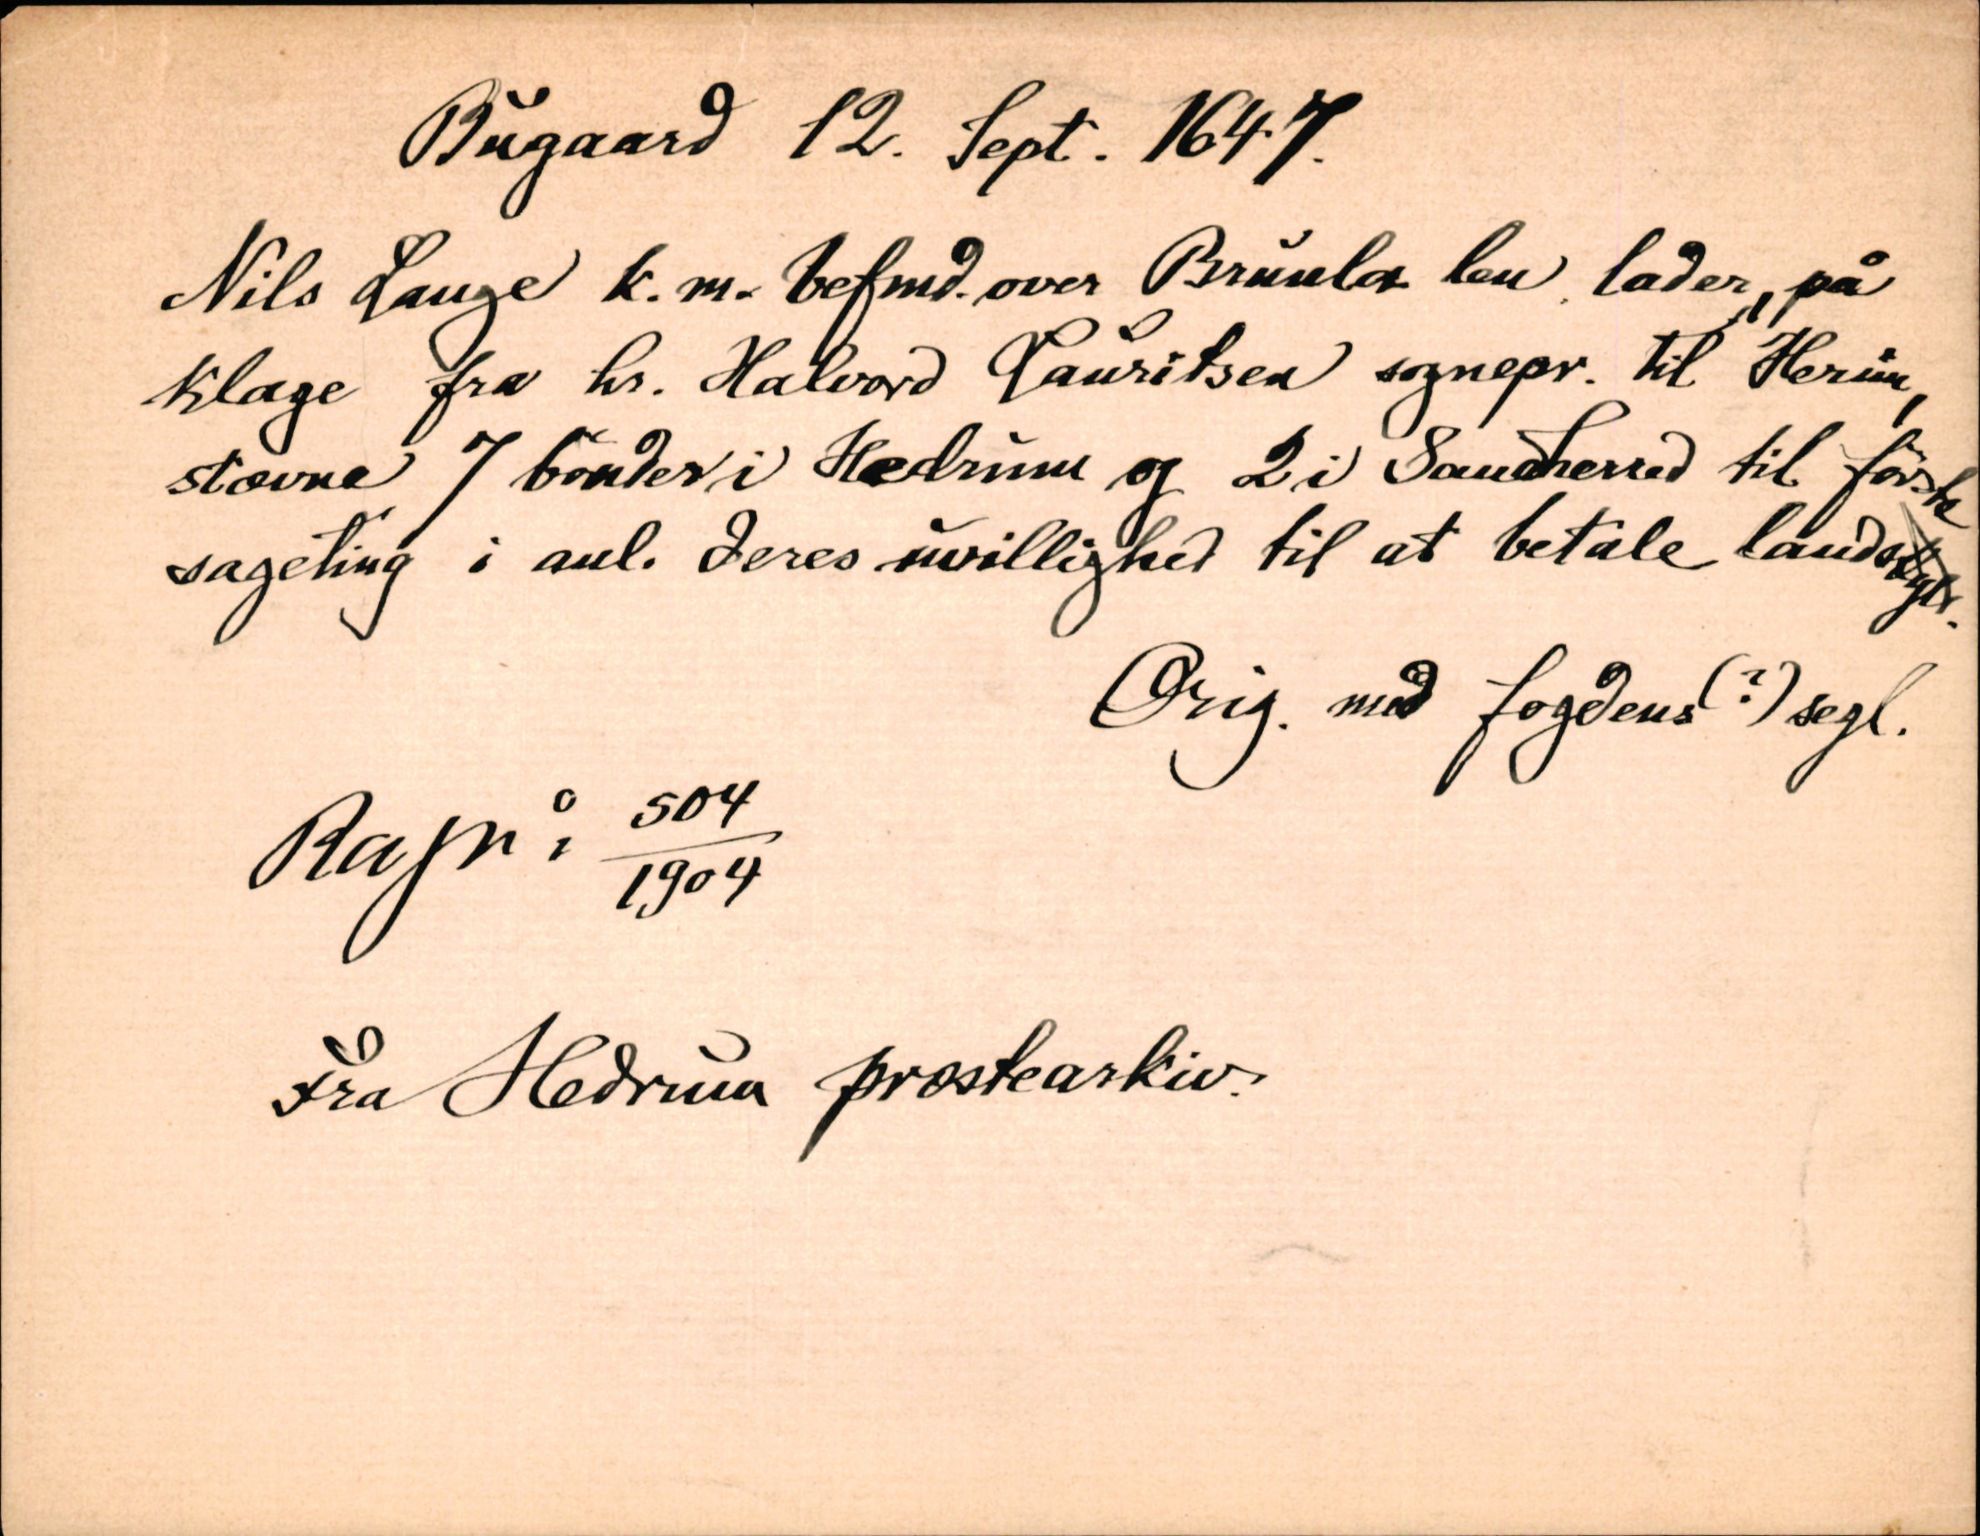 Bugaard 12. Sept. 1647.
Nils Lange k. m. befmd. over Brunla len lader, på
klage fra hr. Halvord Lauritsen sognepr. til Herum,
stævne 7 bönder i Hedrum og 2 i Sandherred til förste
sageting i anl. deres uvillighed til at betale landskyld.
Orig. med fogdens (?) segl.
504
1904
Fra Hedrum prestearkiv.